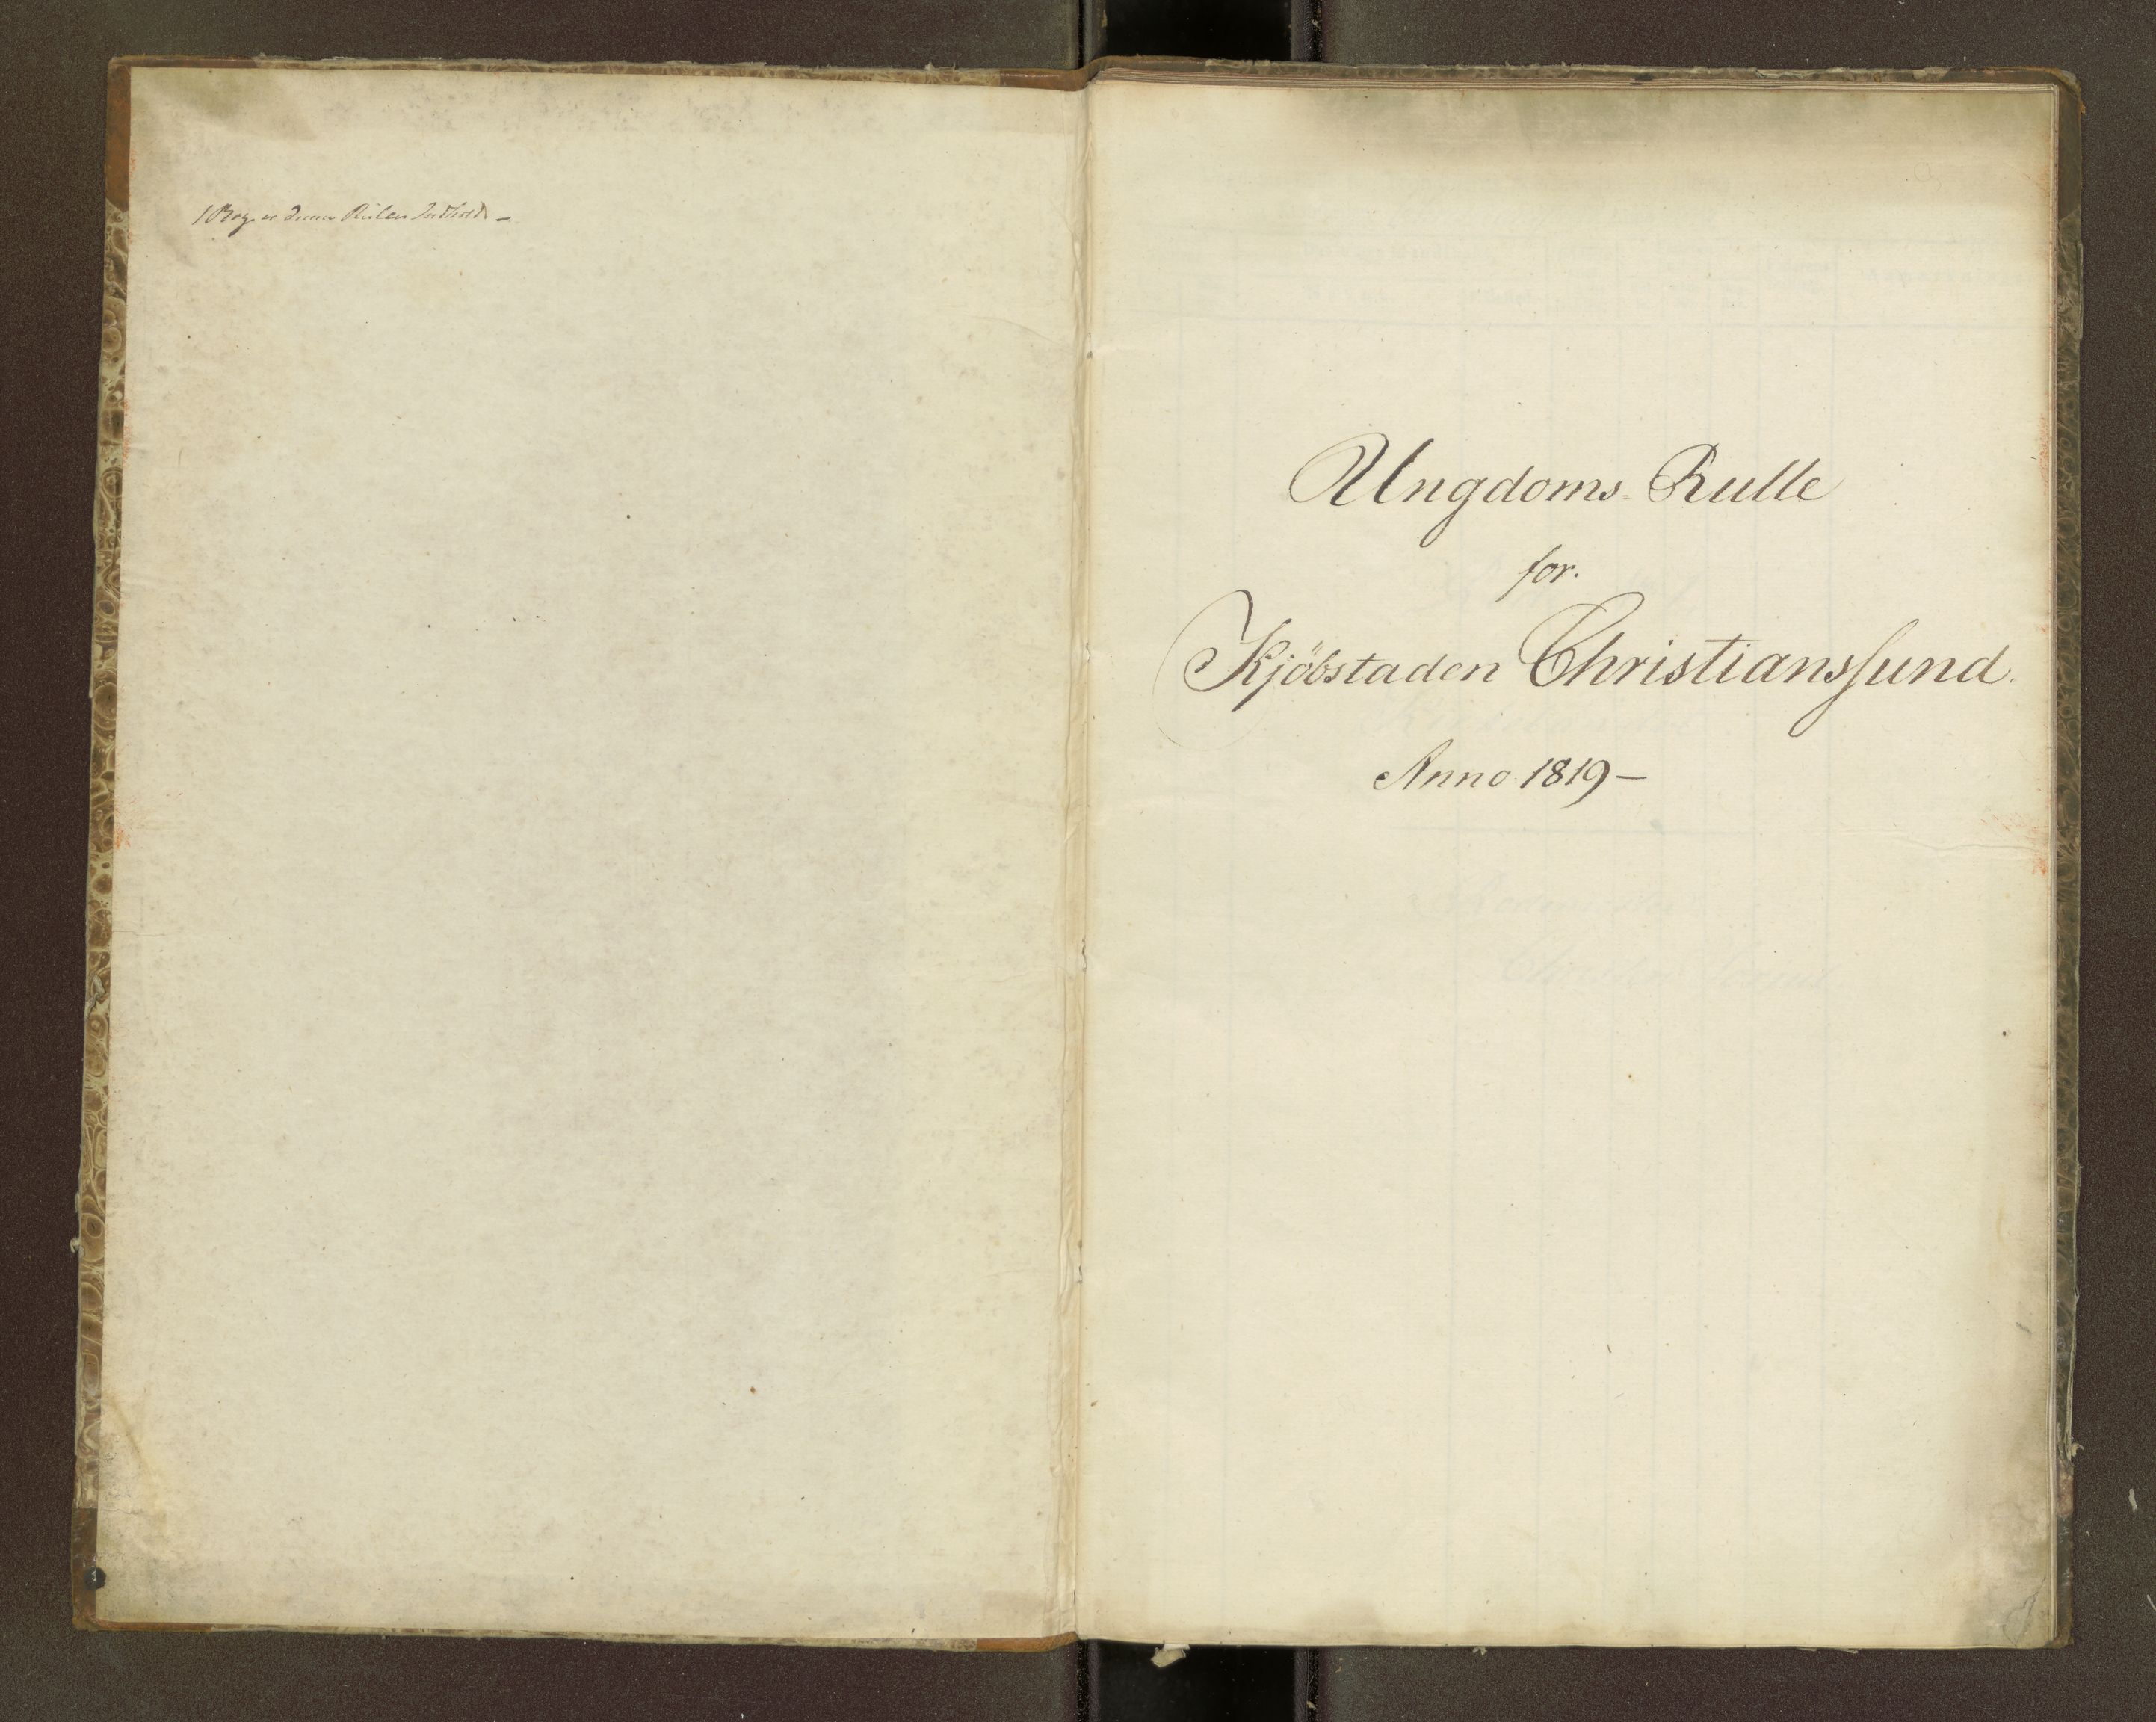 Bog er denne Rulles Indhold –
Ungdoms-Rulle
for.
Kjöbstaden Christianssund.
Anno 1819 –